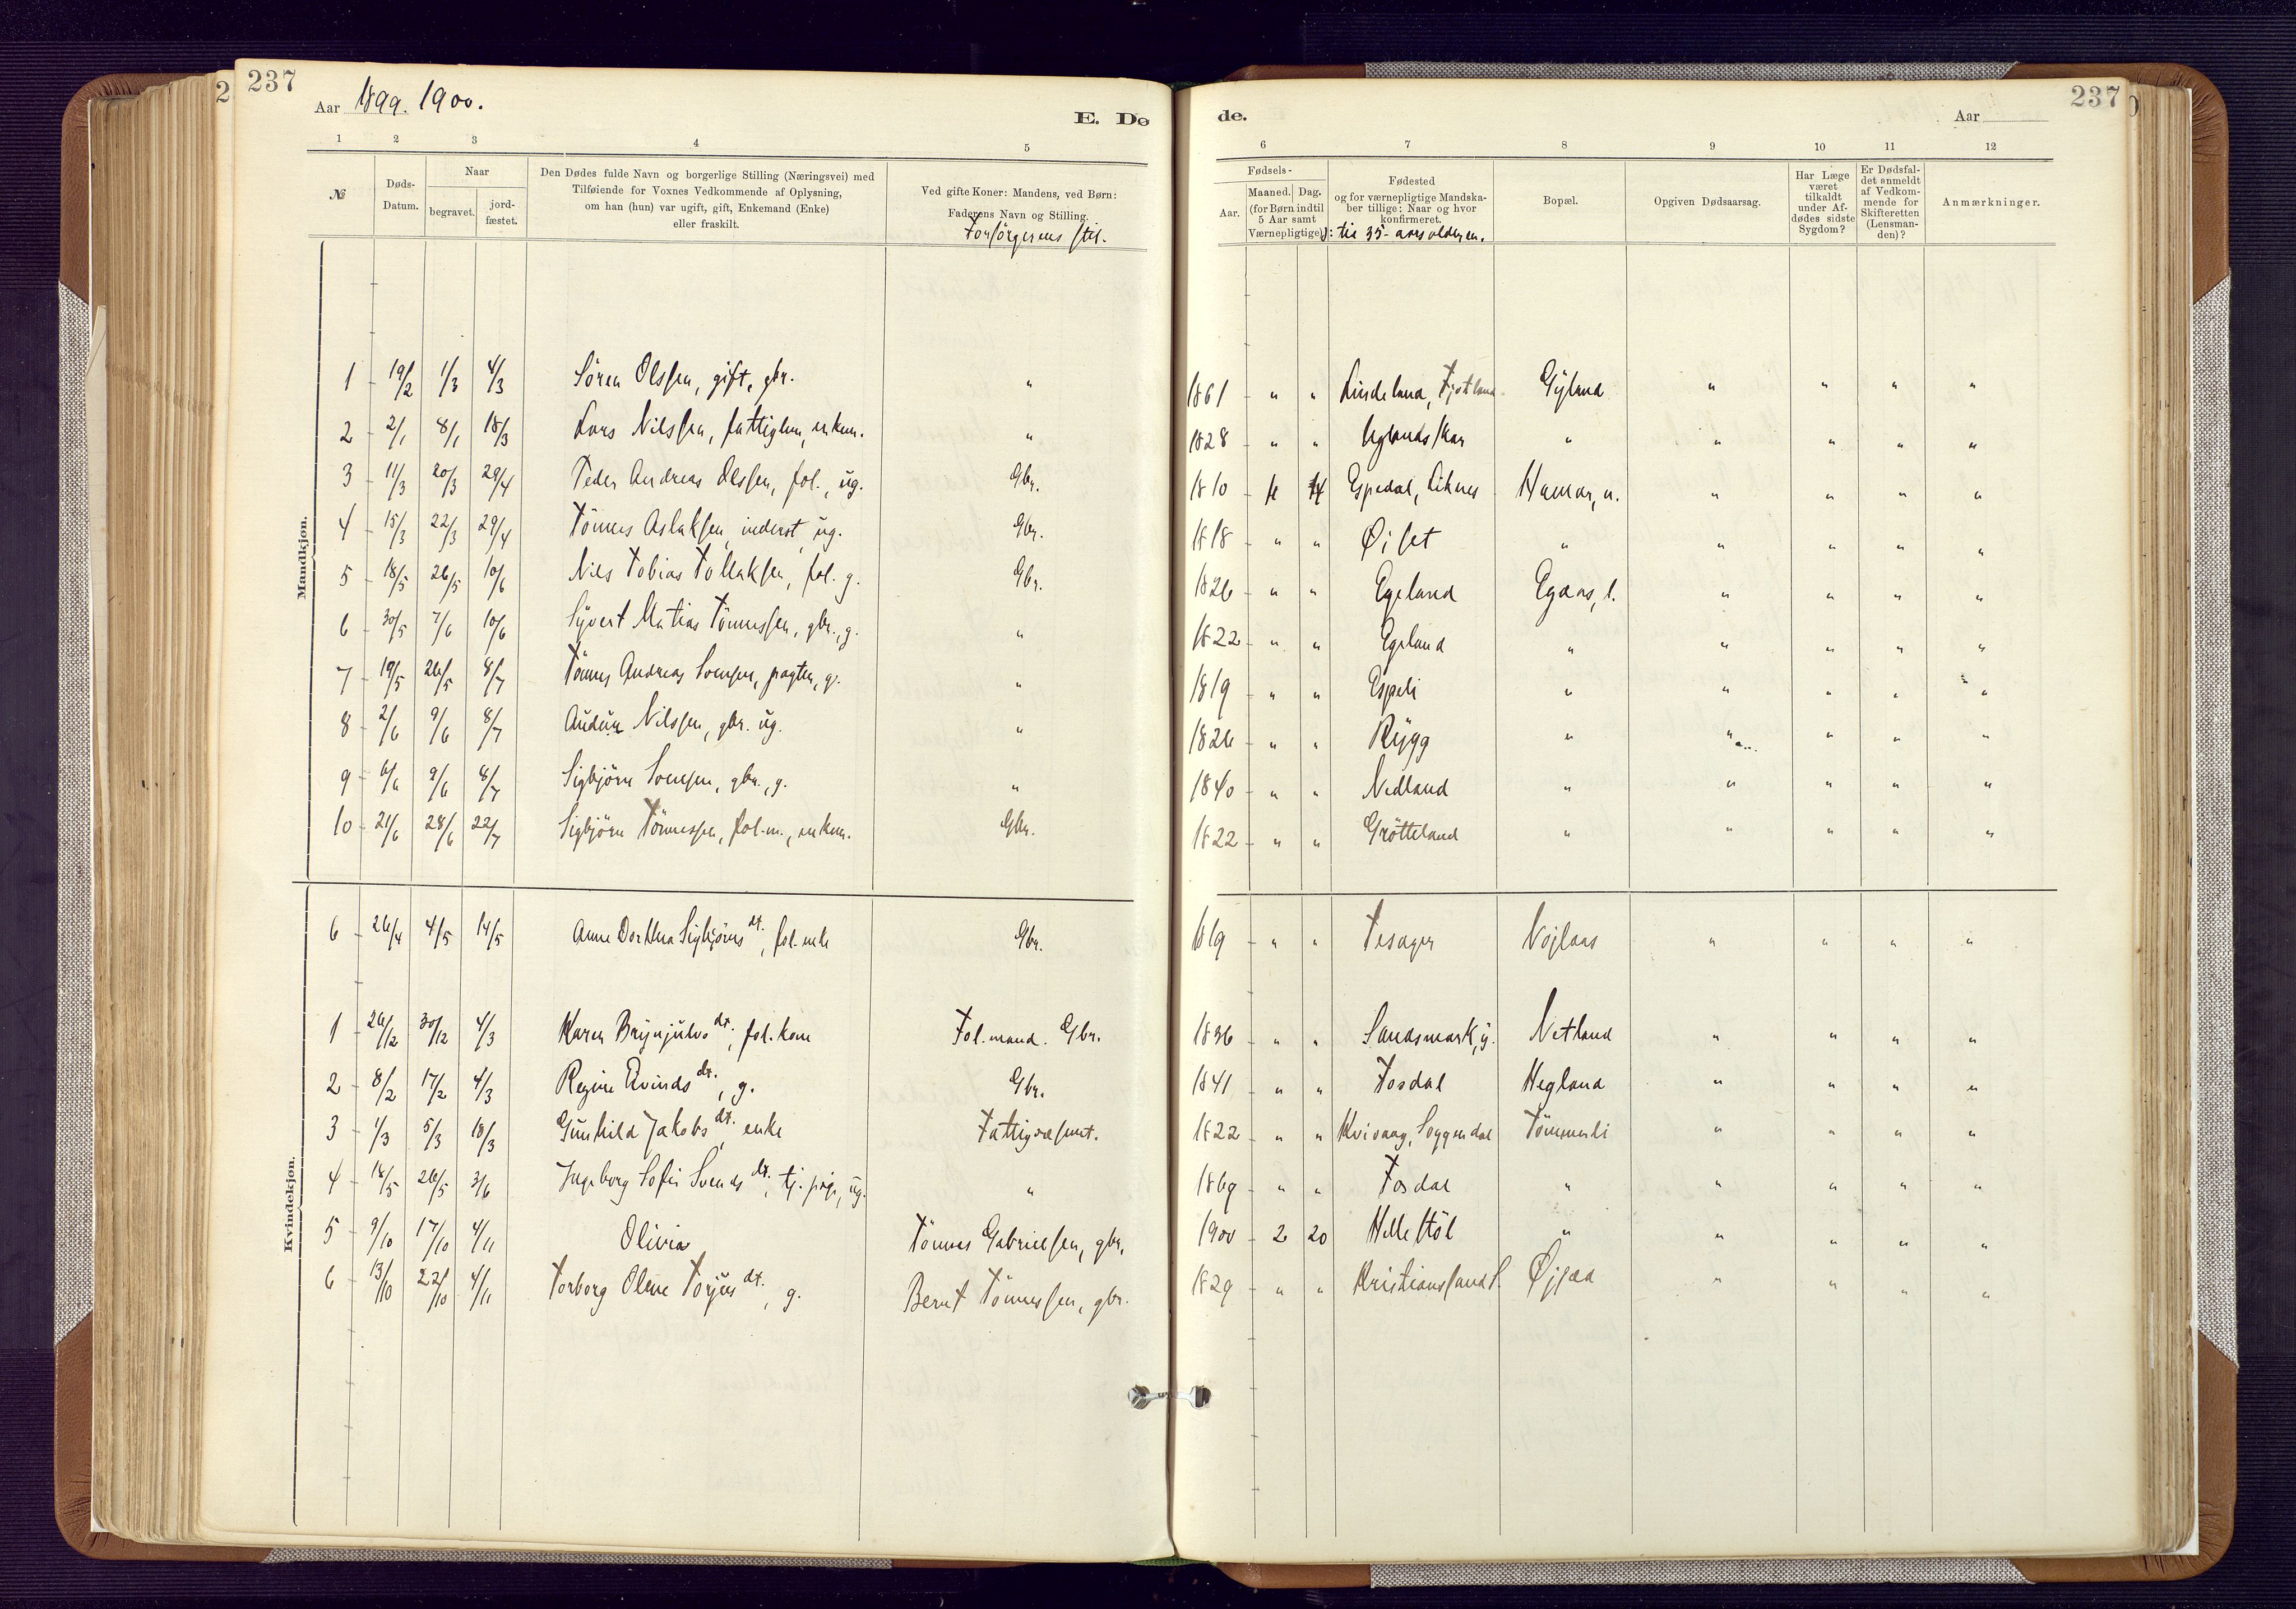 237
Aar 1899. 1900.
E. Dø
de.
Aar
237
1 2 3 4 5 6 7 8 9 10 11 12
№
Døds-Datum.
Naar
begravet.
jord-fæstet.
Den Dødes fulde Navn og borgerlige Stilling (Næringsvei) med
Tilføiende for Voxnes Vedkommende af Oplysning,
om han (hun) var ugift, gift, Enkemand (Enke)
eller fraskilt.
Ved gifte Koner: Mandens, ved Børn:
Faderens Navn og Stilling.
Forsørgerens stil.
Fødsels-
Aar.
Maaned. Dag.
(for Børn indtil
5 Aar samt
Værnepligtige)
Fødested
og for værnepligtige Mandska-
ber tillige: Naar og hvor
konfirmeret.
ɔ: til 35-aarsalderen.
Bopæl.
Opgiven Dødsaarsag.
Har Læge
været
tilkaldt
under Af-
dødes sidste
Sygdom?
Er Dødsfal-
det anmeldt
af Vedkom-
mende for
Skifteretten
(Lensman-
den)?
Anmærkninger.
Mandkjøn.
1 19/2 1/3 4/3 Sören Olssen, gift, gbr. " 1861 " " Lindeland, Fjotland Gyland " " " "
2 2/1 8/1 18/3 Lars Nilssen, fattiglem, enkem. " 1828 " " " " " " "
3 11/3 20/3 29/4 Peder Andreas Olssen, fol., ug. Gbr. 1810 14 Espedal, Liknes Hamar, n. " " " "
4 15/3 22/3 29/4 Tönnes Aslaksen, inderst, ug. Gbr. 1818 " " Øiset " " " " "
5 18/5 26/5 10/6 Nils Tobias Tollaksen, fol. g. Gbr. 1826 " " Egeland Egaas, l. " " " "
6 30/5 7/6 10/6 Syvert Matias Tönnessen, gbr., g. " 1822 " " Egeland " " " " "
7 19/5 26/5 8/7 Tönnes Andreas Svensen, pagter, g. " 1819 " " Espeli " " " " "
8 2/6 9/6 8/7 Audun Nilssen, gbr. ug. " 1826 " " Rygg " " " " "
9 6/6 9/6 8/7 Sigbjörn Svensen, gbr., g. " 1840 " " Nedland " " " " "
10 21/6 28/6 22/7 Sigbjörn Tönnessen, fol.m., enkem. Gbr. 1822 " " Grötteland " " " " "
Kvindekjøn.
6 26/4 4/5 14/5 Anne Dorthea Sigbjörns dt., fol. enke Gbr. 1819 " " Tesager " " " "
1 26/12 30/12 4/3 Karen Brynjulvs dt., fol. kone Fol.mand. Gbr. 1836 " " Sandsmark, y. Netland " " " "
2 8/2 17/2 4/3 Regine Eivinds dt., g. Gbr. 1841 " " Fosdal Hegland " " " "
3 1/3 5/3 18/3 Gunhild Jakobs dt. enke Fattigvæsnet. 1822 " " Kvivang, Soggendal Tömmerli " " " "
4 18/5 26/5 3/6 Ingeborg Sofie Svends dt., tj. pige, ug. " 1869 " " Fosdal " " " " "
5 9/10 17/10 4/11 Olivia Tönnes Gabrielsen, gbr. 1900 2 20 Hellestöl " " " " "
6 13/10 22/10 4/11 Torborg Oline Torjus dt., g. Bernt Tönnessen, gbr. 1829 " " Kristianssand S. " " " "